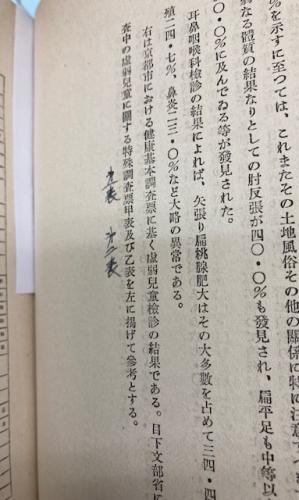 を示すに至つては、これまたその土地風俗その他の關係に特に注意
なる體質の結果なりとしての肘反張が四〇・〇%も發見され、扁平足も中等以
〇・〇%に及んでゐる等が發見された。
耳鼻咽喉科檢診の結果によれば、矢張り扁桃腺肥大はその大多數を占めて三四・四
殖二四・七%、鼻炎二三・〇%など大略の異常である。
右は京都市における健康基本調査票に基く虛弱兒童檢診の結果である。目下文部省に
査中の虛弱兒童に關する特殊調査票甲表及び乙表を左に揭げて參考とする。